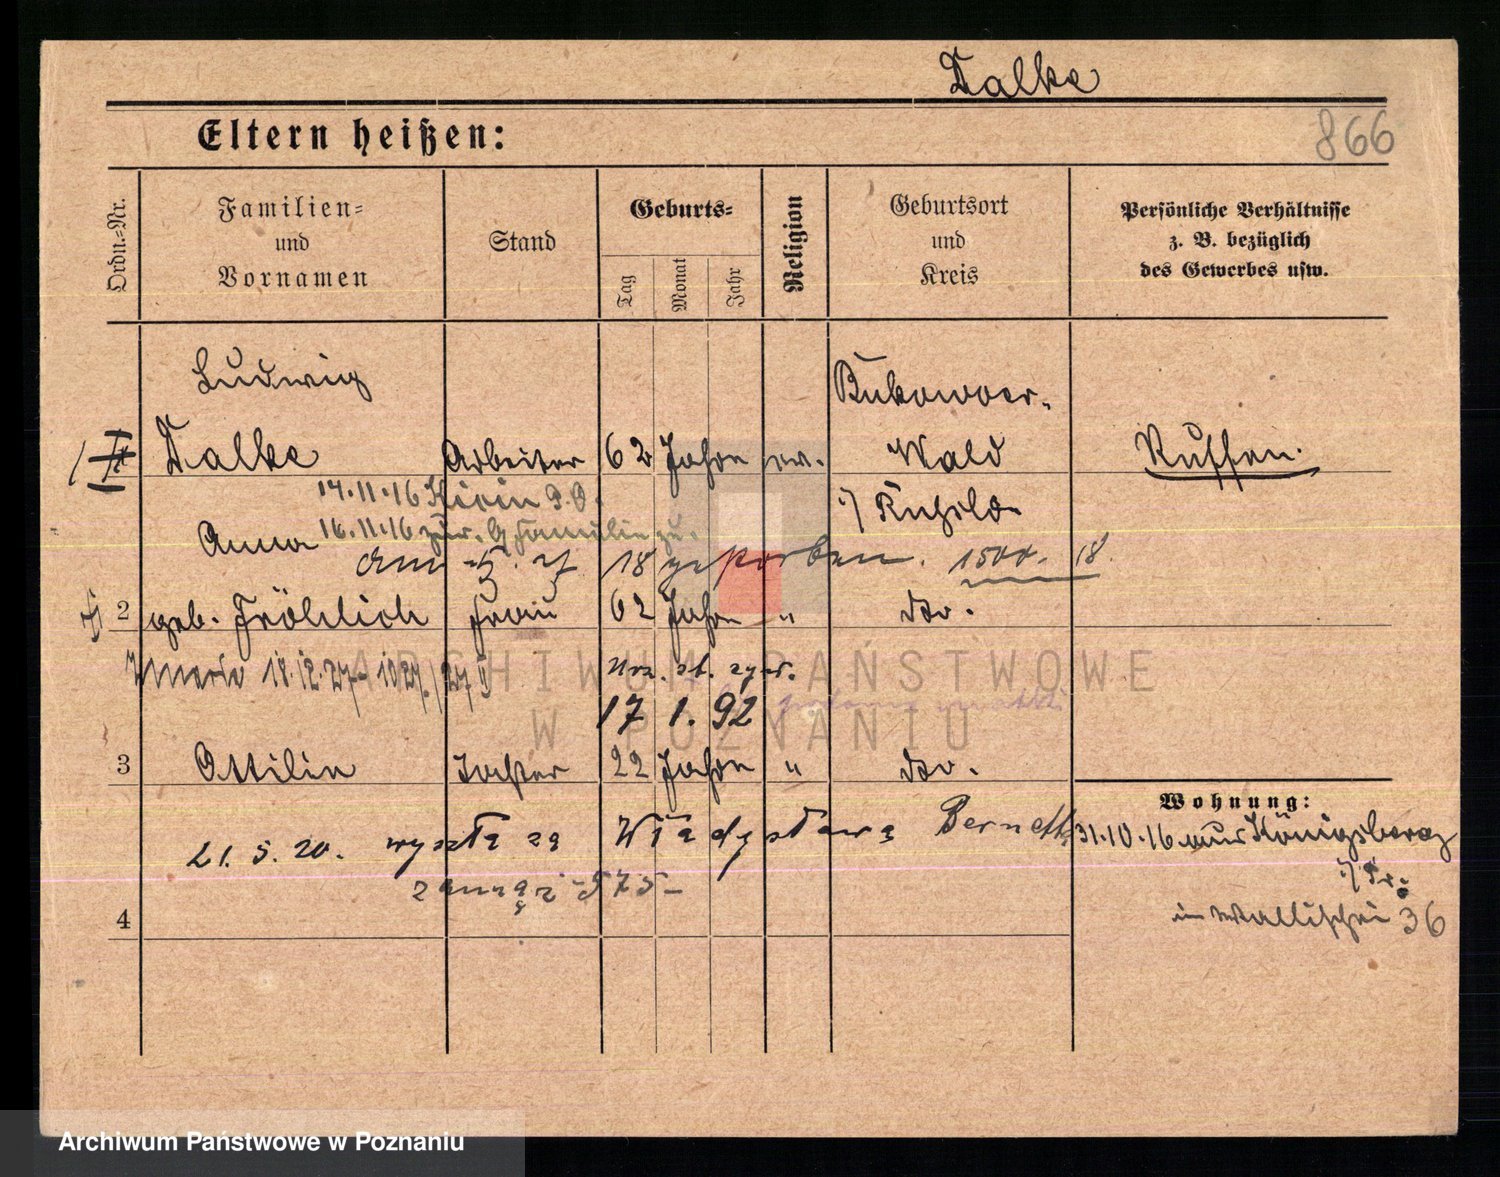 Dalke
Eltern heißen:
866
Ordn.-Nr.
Familien-
und
Vornamen
Stand
Geburts-
Tag
Monat
Jahr
Religion
Geburtsort
und
Kreis
Persönliche Verhältnisse
z. B. bezüglich
des Gewerbes usw.
Ludwig
Dalke Arbeiter 62 Jahre ev.
Bukowoer-
Wald
Russen.
14.11.16
16.11.16 zur. Familie zu.
Anna
am 5. 18 gestorben. 1500. 18.
2 geb. Fröhlich Frau 62 Jahre " do.
18.12.27
17 1. 92
3 Ottilie Tochter 22 Jahre " do.
21.5.20. wyszła za Władysława
575
4
Wohnung:
31.10.16 aus Königsberg
i/Pr.
Wallischei 36
ARCHIWUM PAŃSTWOWE
W POZNANIU
Archiwum Państwowe w Poznaniu